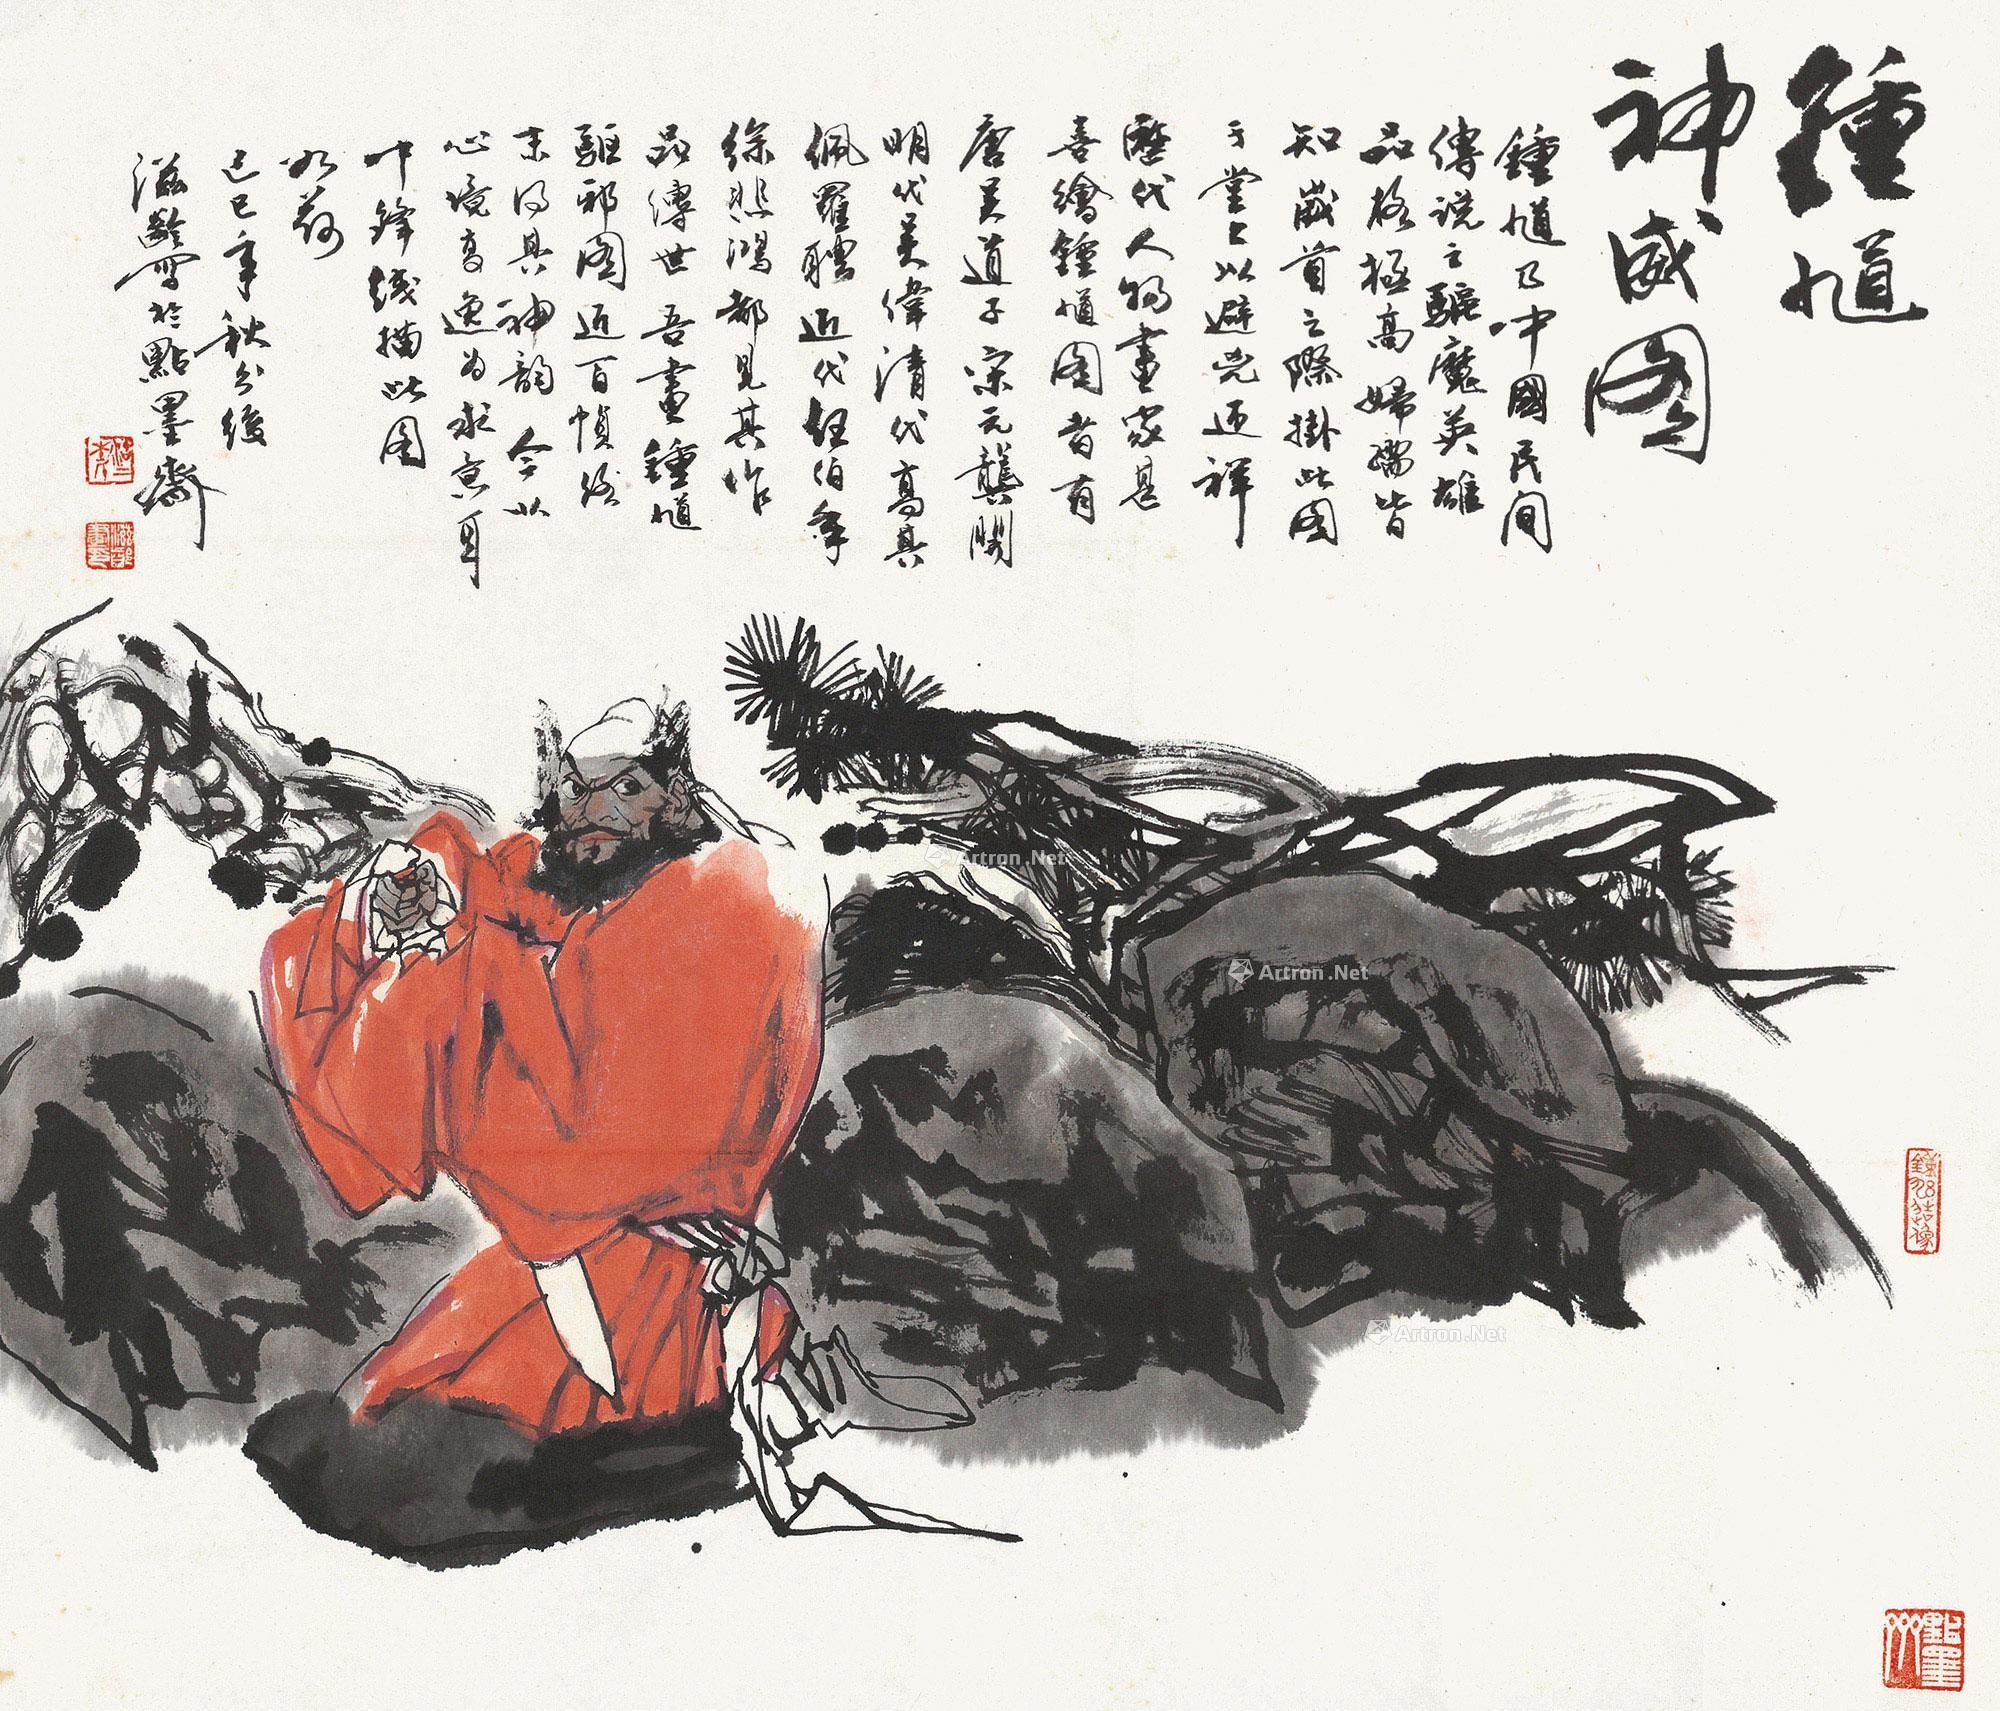 鍾馗
神威图
鍾馗乃中國民间
傳说之驅魔英雄
品格極高婦孺皆
知歲首之際掛此图
于堂上以避兇迎祥
歷代人物畫家甚
喜繪鍾馗图昔有
唐吴道子宋元龔開
明代吴偉清代高其
佩羅聘近代任伯年
徐悲鴻都見其作
品傳世吾畫鍾馗
驅邪图近百幀終
未得其神韵今以
心境高逸为求意耳
中鋒线描此图
如荷
己巳年秋分後
滋齡寫於點墨齋
Artron.Net
Artron.Net
Artron.Net
點墨